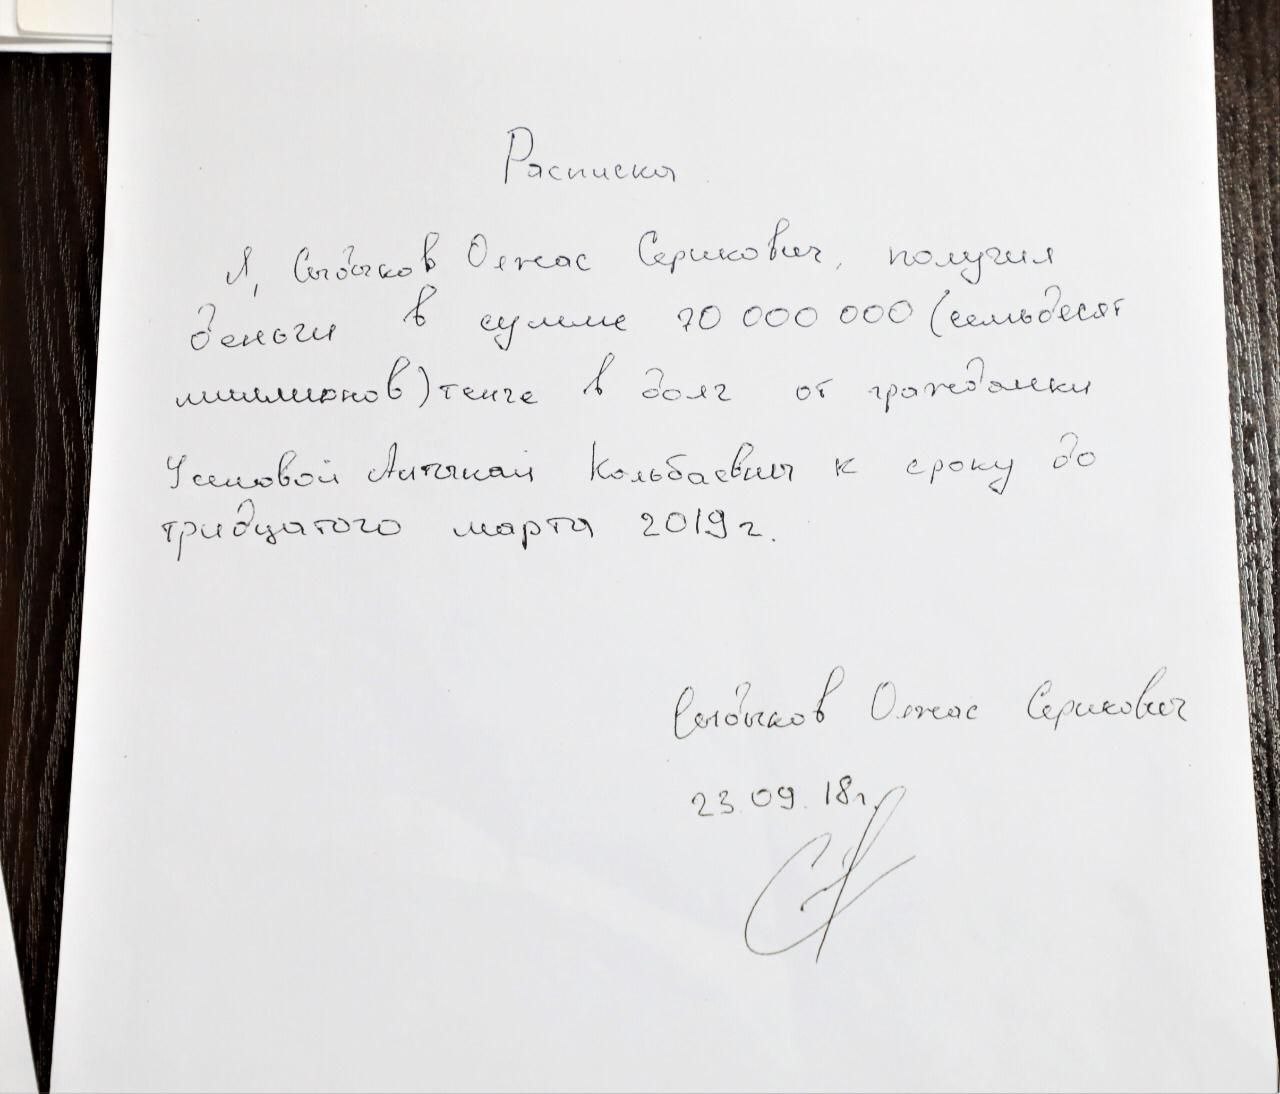 Расписка
Я, Сыдыков Олжас Серикович, получил
деньги в сумме 70 000 000 (семьдесят
миллионов) тенге в долг от гражданки
Усеновой Кольбаевны к сроку до
тридцатого марта 2019 г.
Сыдыков Олжас Серикович
23.09.18г.